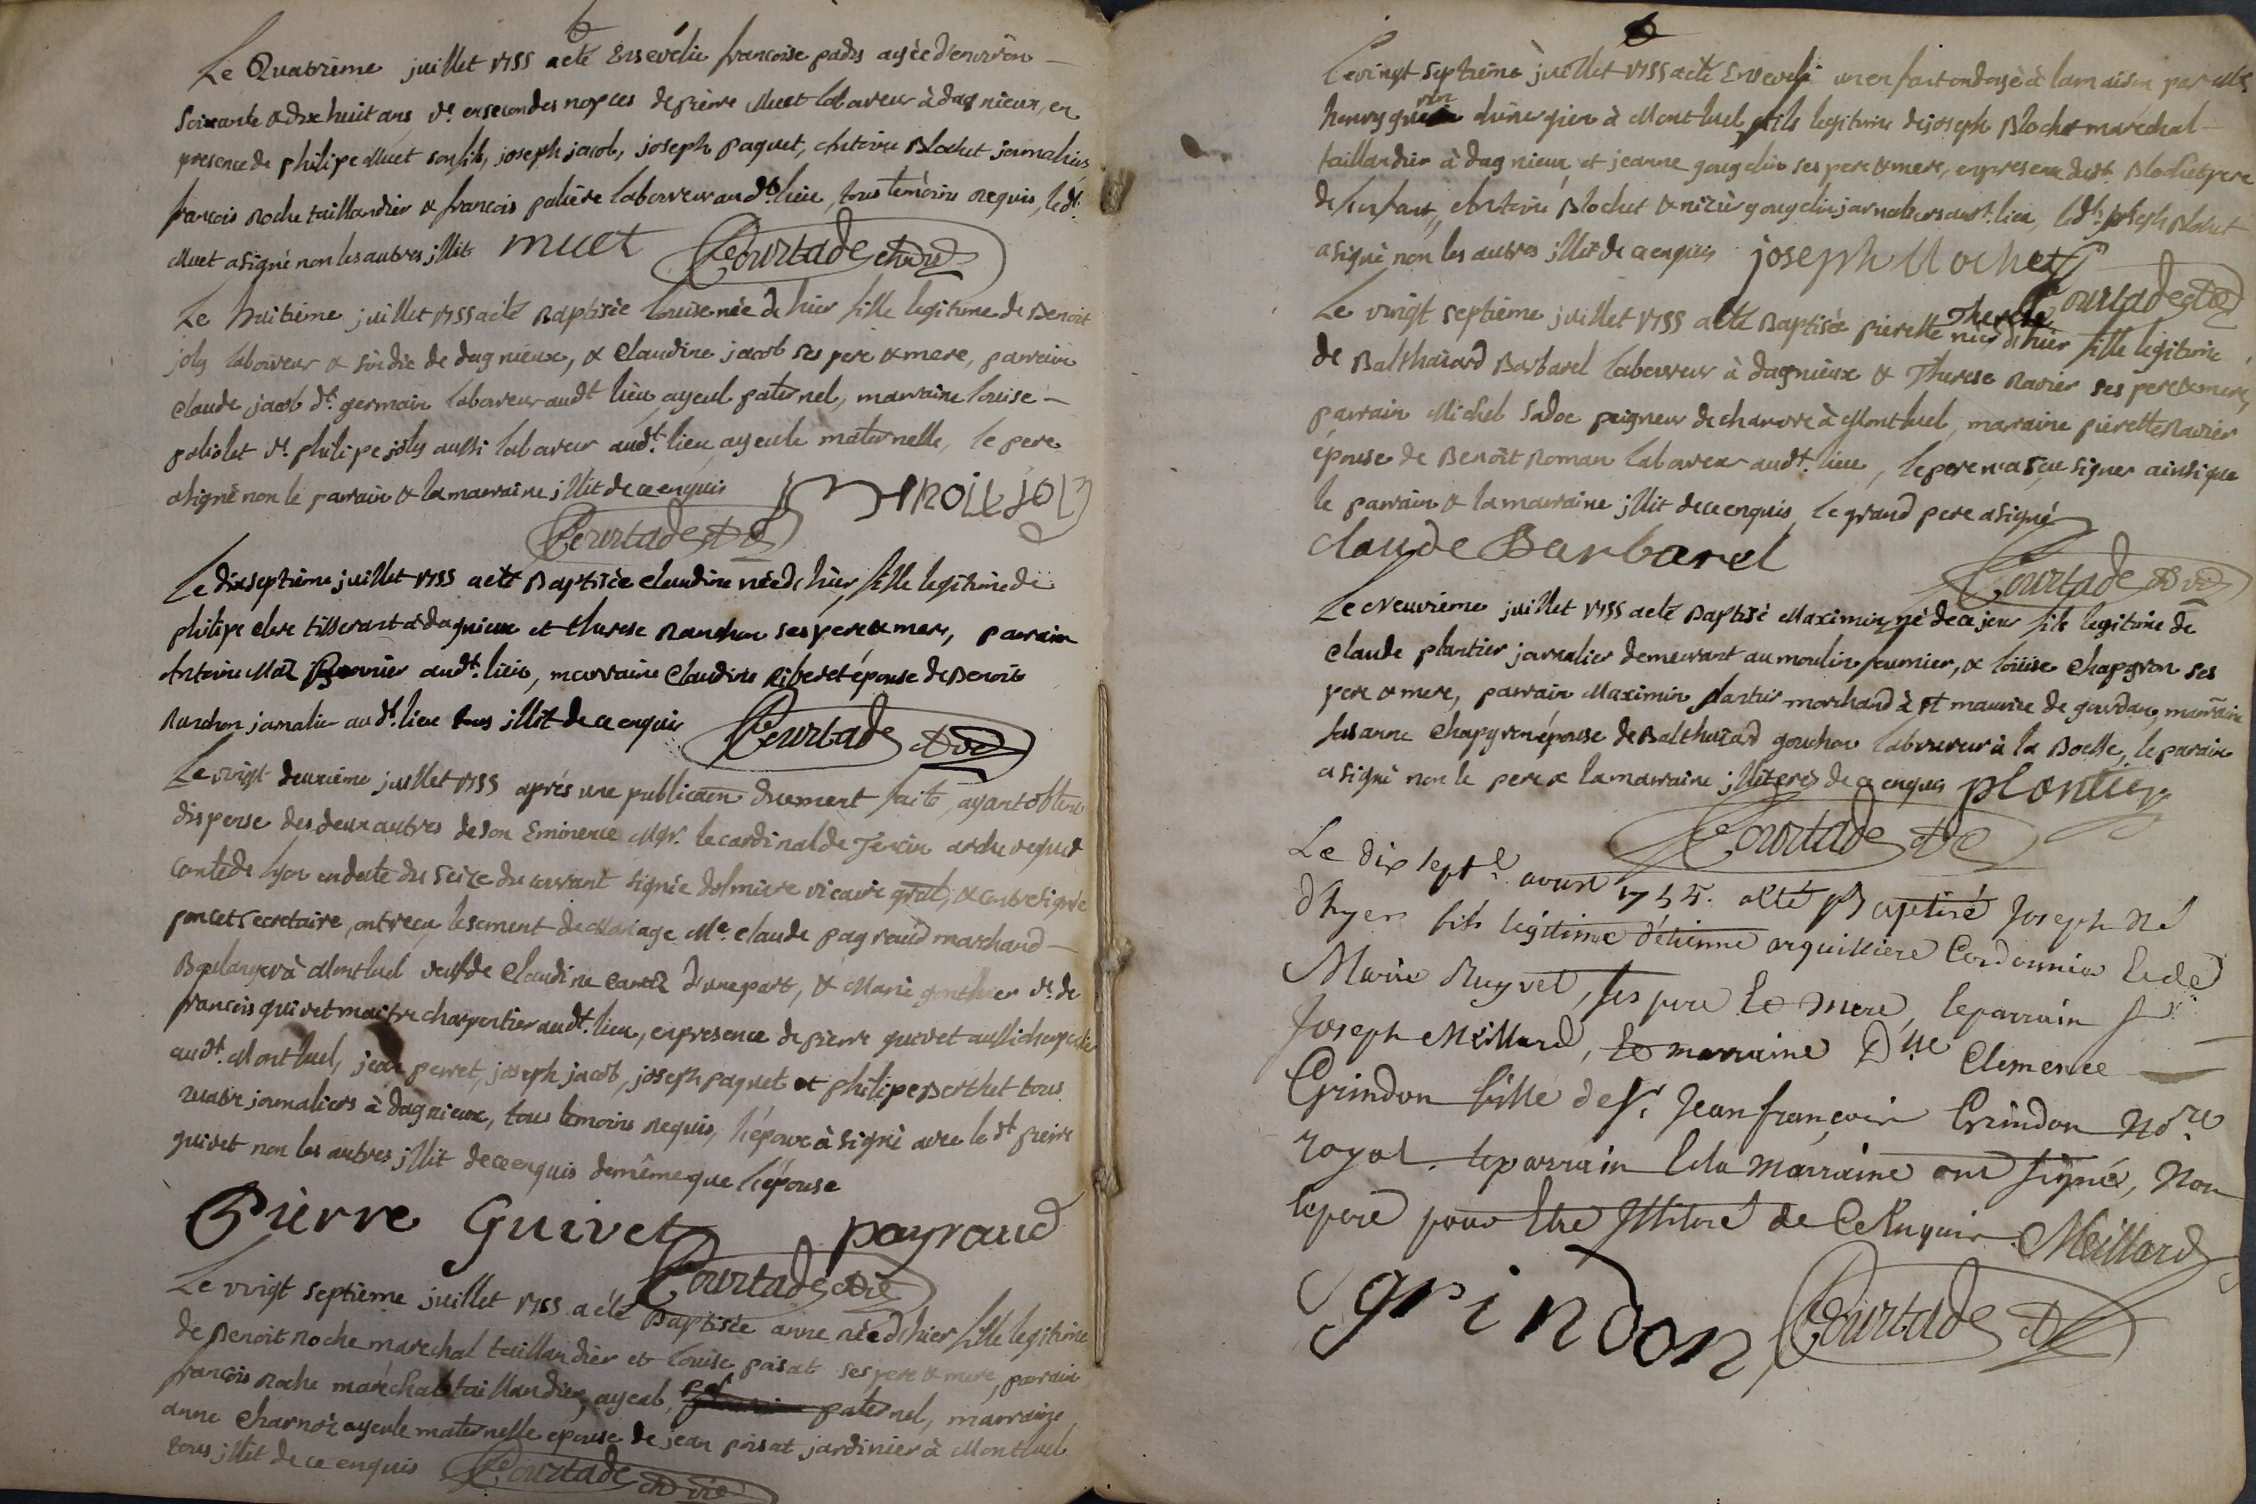 Le Quatrième juillet 1755 a eté Ensevelie françoise padis agée d'environ
soixante & dix huit ans, ve. en secondes nopces de pierre Muet laboureur à dagnieux, en
presence de philipe Muet son fils, joseph jacob, joseph paquet, Antoine Blochet journaliers
françois Roche taillandier & françois paliere laboureur audt. lieu, tous temoins requis, ledt.
Muet a signé non les autres jllit. muet Courtade
Le huitième juillet 1755 a eté Baptisée Louise née de hier fille legitime de Benoit
joly laboureur & sindic de dagnieux, & Claudine jacob ses pere & mere, parrain
Claude jacob dt. germain laboureur audt lieu ayeul paternel, marraine louise
poliolet ve. philipe joly aussi laboureur audt. lieu ayeule maternelle, le pere
a signé non le parrain & la marraine jllit. de ce enquis Benoit joly
Courtade
Le dix septième juillet 1755 a eté Baptisée Claudine née de hier, fille legitime de
philipe tisserant à dagnieux et therese Ranchon ses pere & mere, parrain
Antoine audt. lieu, marraine Claudine Riberet épouse de Benoit
Ranchon jornalier audt. lieu tous jllit. de ce enquis Courtade
Le vingt deuxième juillet 1755 après une publicaon duement faite, ayant obtenu
dispense des deux autres de son Eminence Mgr. le cardinal de Tencin archeveque &
Comte de lyon en date du seize du courant signée dolmiere vicaire gnal, & contresigné
poncet secretaire, ont reçu le sacment de Mariage Me. Claude payraud marchand
Boulanger à Montluel veuf de Claudine d'une part, & Marie gonthier ve. de
françois guivet maitre charpentier audt. lieu, en presence de pierre guivet aussi charpentier
audt. Montluel, jean perret, joseph jacob, joseph paquet et philipe Berthet tous
quatre journaliers à dagnieux, tous temoins requis, l'époux à signé avec le dt pierre
guivet non les autres jllit. de ce enquis de même que l'épouse
Pierre Guivet payraud
Courtade
Le vingt septième juillet 1755 a été Baptisée anne née de hier fille legitime
de Benoit Roche marechal taillandier et louise poisat ses pere & mere, parrain
françois Roche maréchal taillandier, ayeul, paternel, marraine
anne Charnoz ayeule maternelle epouse de jean poisat jardinier à Montluel
tous jllit. de ce enquis Courtade
Le vingt septième juillet 1755 a eté Enseveli un enfant ondoyé à la maison par Me
henry guerin chirurgien à Montluel fils legitime de joseph Blochet maréchal
taillandier à dagnieux et jeanne gougelin ses pere & mere, en presence dudt. Blochet pere
de l'enfant, Antoine Blochet & gougelin jornaliers audt. lieu, ledt. joseph Blochet
a signé non les autres jllit. de ce enquis joseph blochet
Courtade
Le vingt septième juillet 1755 a eté Baptisée pierette Therese née de hier fille legitime
de Balthazard Barbarel laboureur à dagnieux & Therese Ravier ses pere & mere,
parrain Michel Sadoc peigneur de chanvre à Montluel, marraine pierette Ravier
épouse de Benoit Roman laboureur audt. lieu, le pere n'a sçu signer ainsi que
le parrain & la marraine jllit. de ce enquis, le grand pere a signé
claude Barbarel
Courtade
Le neuvième juillet 1755 a eté Baptisé Maximin né de ce jour fils legitime de
Claude plantier journalier demeurant au moulin fournier, & loüise Chapgron ses
pere & mere, parrain Maximin plantier marchand à St maurice de gourdan, marraine
susanne Chapgron épouse de Balthazard gouchon laboureur à la Boesse, le parrain
a signé non le pere & la marraine jlliterés de ce enquis plantier
Courtade
Le dix sept.e aoust 1755. a été Baptisé Joseph né
d'hyer fils légitime d'étienne arquilliere Cordonnier & de
Marie Ruyvet, ses pere & mere, le parrain sr.
Joseph Meillard, la marraine Dlle Clemence
Grindon fille de sr. Jean françois Grindon Nore.
royal. le parrain & la marraine ont signé, non
le pere pour être jllitéré de ce enquis Meillard
grindon Courtade